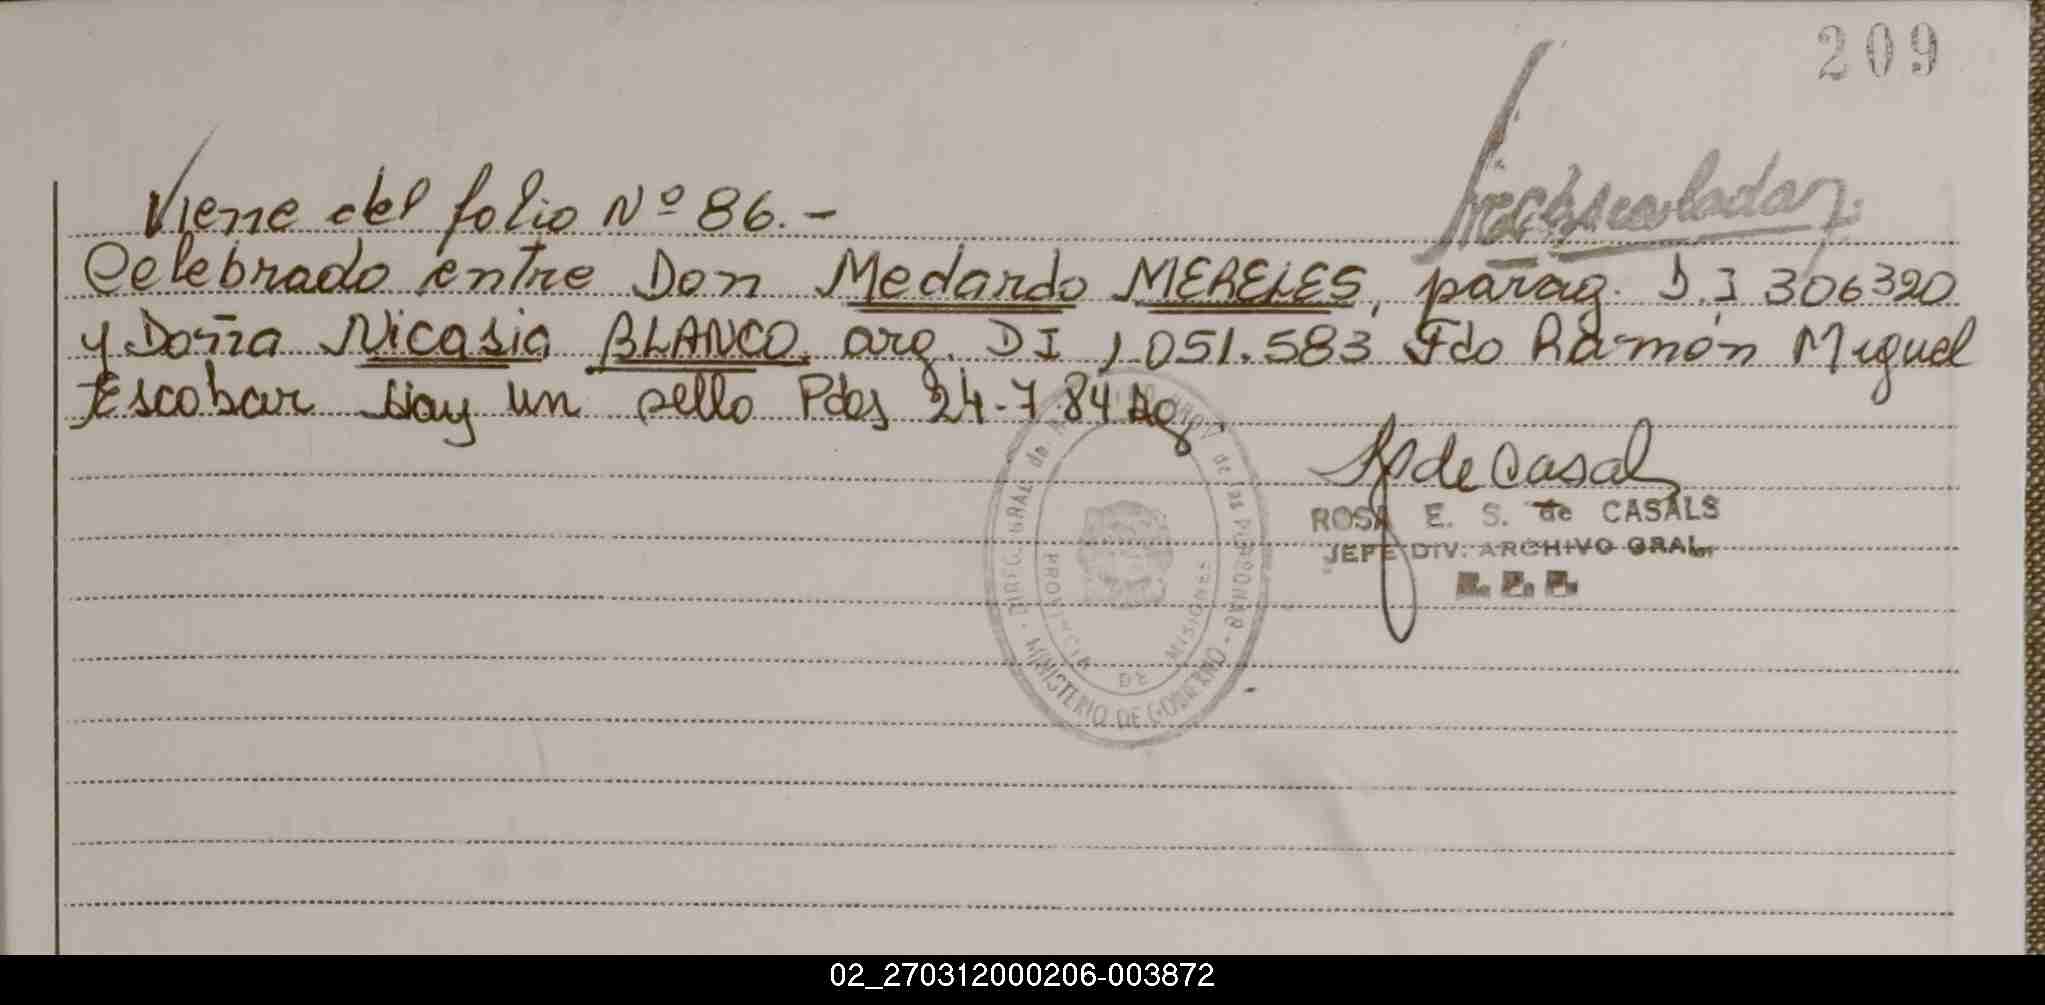 209
Viene del folio Nº 86.-
Celebrado entre Don Medardo MERELES, parag. D.I 306320
y Doña Nicasia BLANCO, arg. DI 1.051.583 Fdo Ramón Miguel
Escobar Hay un sello Pdas 24-7 84
de Casals
ROSA E. S. de CASALS
JEFE DIV. ARCHIVO GRAL.
R. P. P.
DIREC. GRAL de de las PERSONAS - MINISTERIO DE GOBIERNO -
PROVINCIA DE MISIONES
02_270312000206-003872